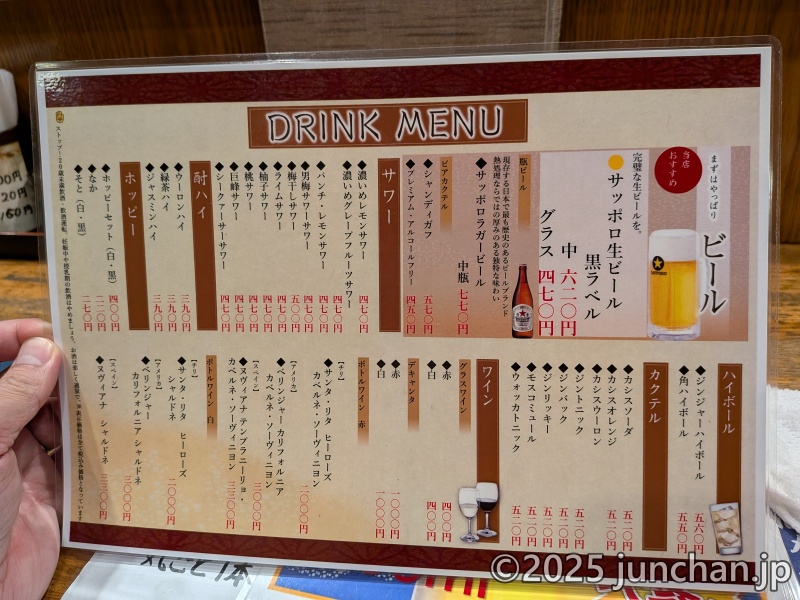 DRINK MENU
まずはやっぱり
ビール
当店
おすすめ
完璧な生ビールを。
サッポロ生ビール
黒ラベル
中 六二〇円
グラス 四七〇円
瓶ビール
現存する日本で最も歴史のあるビールブランド
熱処理ならではの厚みのある独特な味わい
◆サッポロラガービール
中瓶 七七〇円
ビアカクテル
◆シャンディガフ 五七〇円
◆プレミアム・アルコールフリー 四五〇円
サワー
◆濃いめレモンサワー 四七〇円
◆濃いめグレープフルーツサワー 四七〇円
◆パンチ・レモンサワー 四七〇円
◆男梅サワーサワー 四七〇円
◆梅干しサワー 五〇〇円
◆ライムサワー 四七〇円
◆柚子サワー 四七〇円
◆桃サワー 四七〇円
◆巨峰サワー 四七〇円
◆シークァーサーサワー 四七〇円
酎ハイ
◆ウーロンハイ 三九〇円
◆緑茶ハイ 三九〇円
◆ジャスミンハイ 三九〇円
ホッピー
◆ホッピーセット（白・黒） 四〇〇円
◆なか 二二〇円
◆そと（白・黒） 二七〇円
ハイボール
◆ジンジャーハイボール 五六〇円
◆角ハイボール 五五〇円
カクテル
◆カシスソーダ 五二〇円
◆カシスオレンジ 五二〇円
◆カシスウーロン 五二〇円
◆ジントニック 五二〇円
◆ジンバック 五二〇円
◆ジンリッキー 五二〇円
◆モスコミュール 五二〇円
◆ウォッカトニック 五二〇円
ワイン
グラスワイン
◆赤 四〇〇円
◆白 四〇〇円
デキャンタ
◆赤 一〇〇〇円
◆白 一〇〇〇円
ボトルワイン 赤
【チリ】
◆サンタ・リタ ヒーローズ
カベルネ・ソーヴィニヨン 二〇〇〇円
【アメリカ】
◆ベリンジャー カリフォルニア
カベルネ・ソーヴィニヨン 三〇〇〇円
【スペイン】
◆ヌヴィアナ テンプラニーリョ・
カベルネ・ソーヴィニヨン 三三〇〇円
ボトルワイン 白
【チリ】
◆サンタ・リタ ヒーローズ
シャルドネ 二〇〇〇円
【アメリカ】
◆ベリンジャー
カリフォルニア シャルドネ 三〇〇〇円
【スペイン】
◆ヌヴィアナ シャルドネ 三三〇〇円
ストップ！20歳未満飲酒・飲酒運転。妊娠中や授乳期の飲酒はやめましょう。お酒は楽しく適量で。※表示価格は全て税込み価格となっています
00円
20円
/60円
©2025 junchan.jp